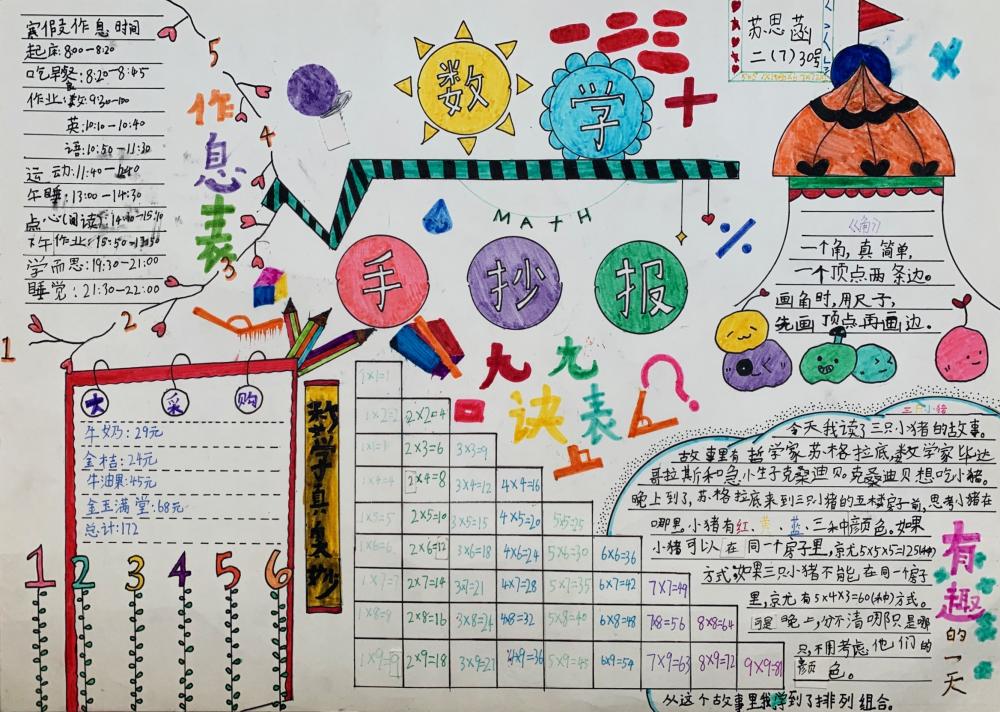 寒假作息时间
起床:8:00-8:20
吃早餐:8:20-8:45
英:10:10-10:40
语:10:50-11:30
午睡:13:00-14:30
学而思:19:30-21:00
睡觉:21:30-22:00
作息表
1
2
3
4
5
数学
MATH
手抄报
苏思菡
二(7)30号
《角》
一个角,真简单,
一个顶点两条边。
画角时,用尺子,
先画顶点再画边。
大采购
牛奶:29元
金桔:24元
牛油果:45元
金玉满堂:68元
总计:172
1 2 3 4 5 6
数学真美妙
九九
诀表
1×1=1
1×2=2 2×2=4
2×3=6 3×3=9
1×4=4 2×4=8 3×4=12 4×4=16
1×5=5 2×5=10 3×5=15 4×5=20 5×5=25
1×6=6 2×6=12 3×6=18 4×6=24 5×6=30 6×6=36
1×7=7 2×7=14 3×7=21 4×7=28 5×7=35 6×7=42 7×7=49
1×8=8 2×8=16 3×8=24 4×8=32 5×8=40 6×8=48 7×8=56 8×8=64
1×9=9 2×9=18 3×9=27 4×9=36 5×9=45 6×9=54 7×9=63 8×9=72 9×9=81
三只小猪
今天我读了三只小猪的故事。
故事里有哲学家苏格拉底,数学家毕达
哥拉斯和急小生子克桑迪贝克桑迪贝想吃小猪。
晚上到了,苏格拉底来到三只小猪的五楼房子前,思考小猪在
哪里。小猪有红、黄、蓝、三种颜色。如果
小猪可以在同一个房子里,就有5×5×5=125(种)
方式。如果三只小猪不能在同一个房子
里,就有5×4×3=60(种)方式。
可是晚上,分不清哪只是哪
只,不用考虑他们的
颜色。
从这个故事里我学到了排列组合。
有趣的一天